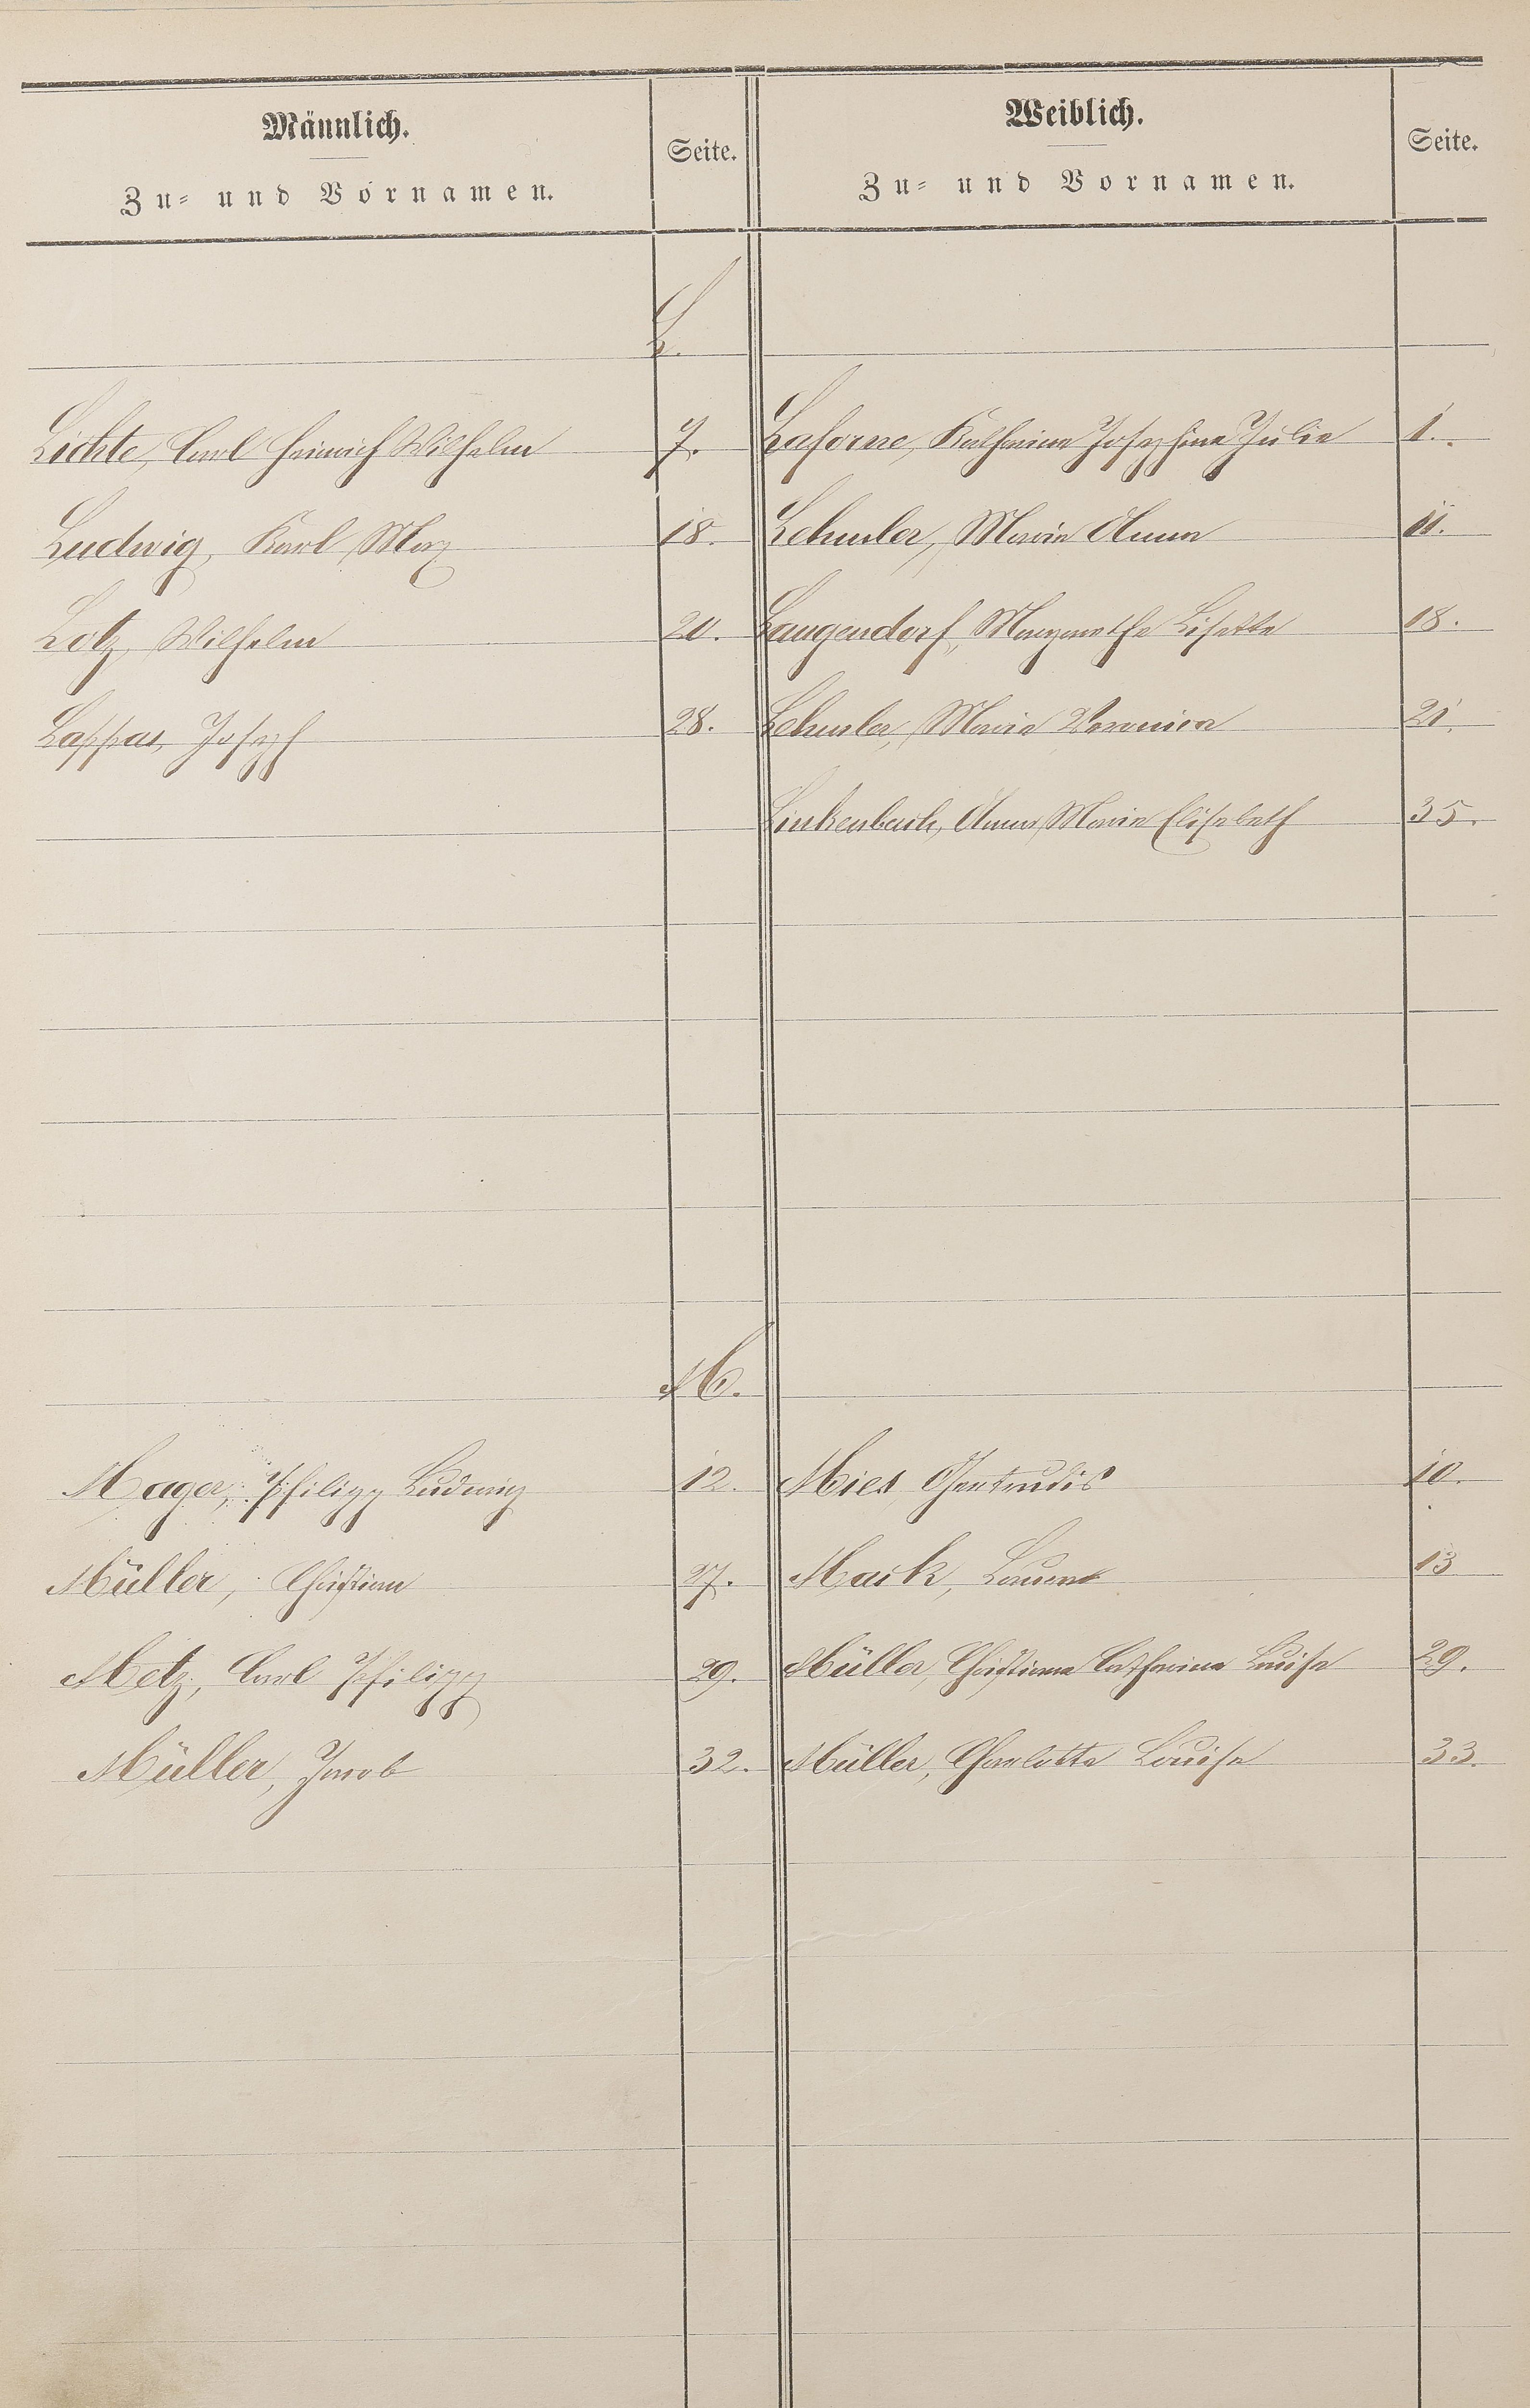 Männlich.
Zu- und Vornamen.
Seite.
Weiblich.
Zu- und Vornamen.
Seite.
L.
Lichte, Carl Heinrich Wilhelm 7. Laforne, Katharina Josephina Julie 1.
Ludwig, Karl Max 18. Lehmler, Maria Anna 11.
Lotz, Wilhelm 20. Langendorf, Margarethe Lisette 18.
Lappas, Joseph 28. Lehmler, Maria Veronica 21.
Linkenbach, Anna Maria Elisabeth 35.
M.
Mager, Philipp Ludwig 12. Mies, Gertrudis 10.
Müller, Christian 27. Mack, 13
Metz, Carl Philipp 29. Müller, Christiana Catharina Luise 29.
Müller, Jacob 32. Müller, Charlotte Louise 33.